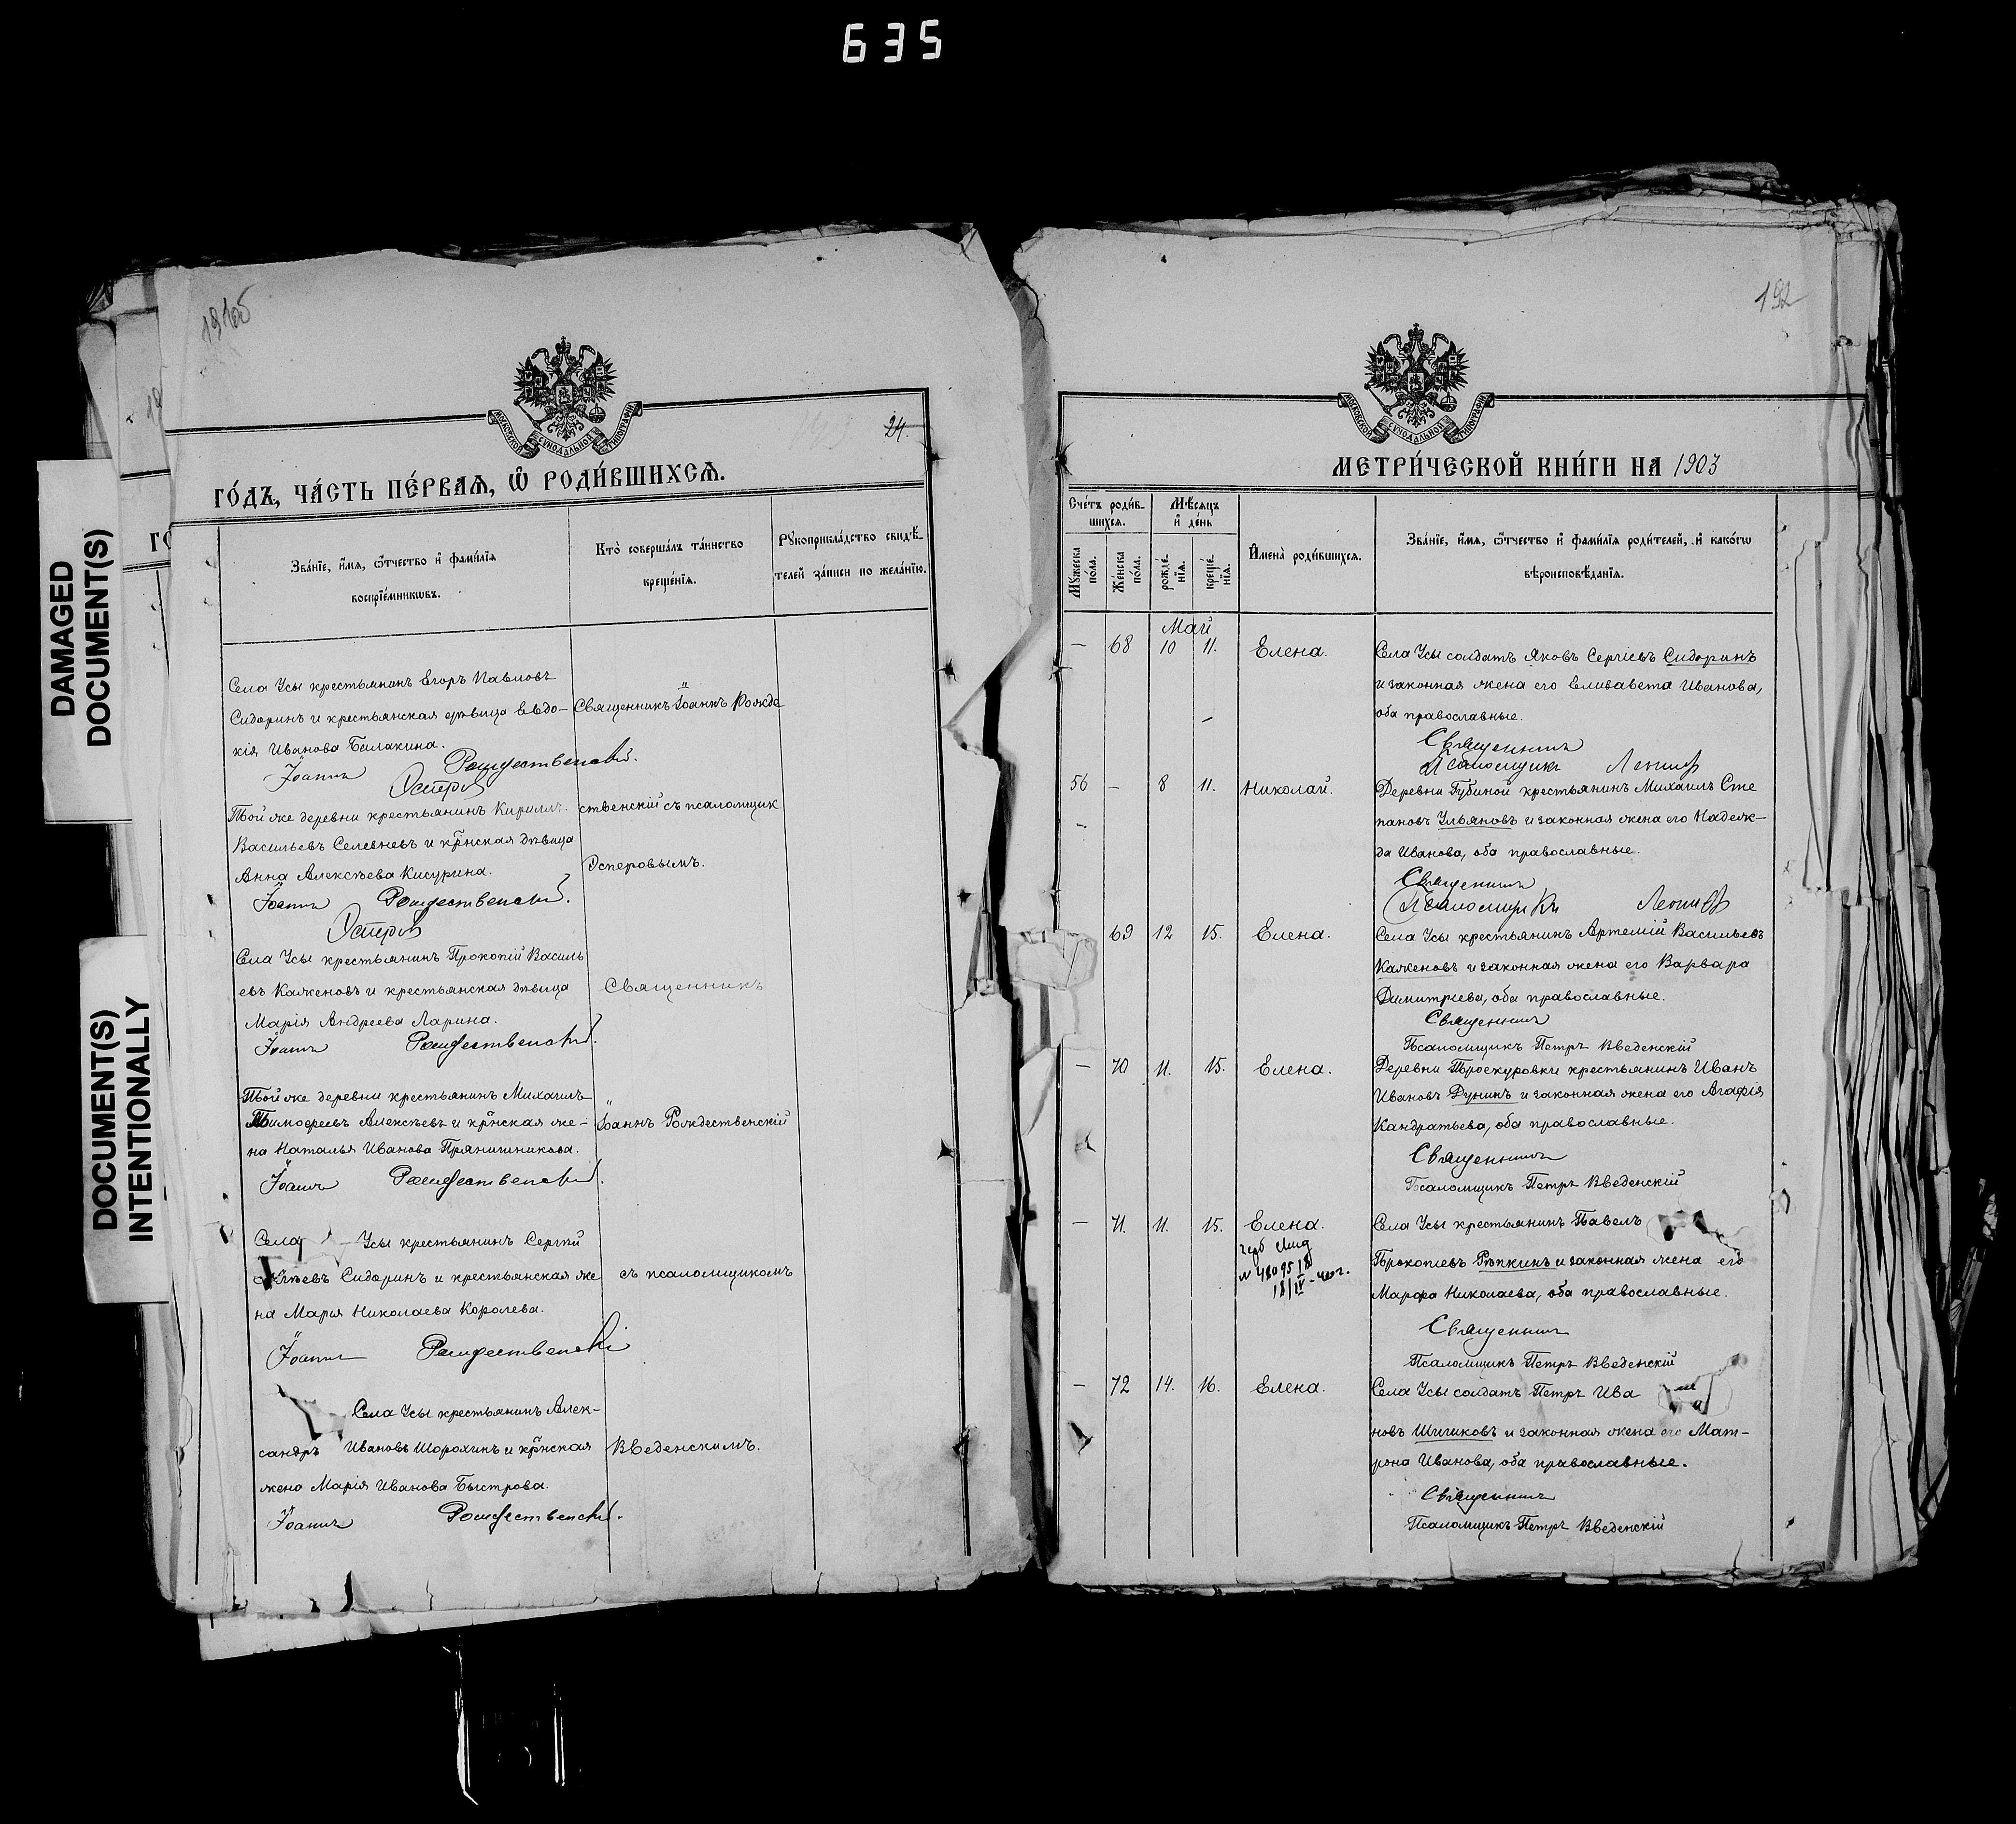 635
DAMAGED
DOCUMENT(S)
DOCUMENT(S)
INTENTIONALLY
МОСКОВСКОЙ СѴНОДАЛЬНОЙ ТИПОГРАФІИ
24.
ГО́ДЪ, ЧА́СТЬ ПЕ́РВАѦ, Ѡ҆ РОДИ́ВШИХСѦ.
Зва́нїе, и҆́мѧ, ѻ҆́тчество и҆ фами́лїѧ
воспрїе́мникѡвъ.
Кто̀ соверша́лъ та́инство
креще́нїѧ.
Рꙋкоприкла́дство свидѣ́-
телей за́писи по жела́нїю.
Села Усы крестьянинъ Егоръ Павловъ
Сидоринъ и крестьянская дѣвица Евдо- Священникъ Іоаннъ Рожде
кія Иванова Балакина.
Іоаннъ Рождественскій.
Той же деревни крестьянинъ Кириллъ ственскій съ псаломщик
Васильевъ Селевневъ и кр҃нская дѣвица
Анна Алексѣева Кисурина. Осперовымъ.
Іоаннъ Рождественскій.
Села Усы крестьянинъ Прокопій Василь
евъ Каженовъ и крестьянская дѣвица Священникъ
Марія Андреева Ларина.
Іоаннъ Рождественскій.
Той же деревни крестьянинъ Михаилъ
Тимофеевъ Алексѣевъ и кр҃нская же- Іоаннъ Рождественскій
на Наталья Иванова Пряничникова.
Іоаннъ Рождественскій.
Села Усы крестьянинъ Сергій
Сидоринъ и крестьянская же съ псаломщикомъ
на Марія Николаева Королева.
Іоаннъ Рождественскій
Села Усы крестьянинъ Алек-
сандръ Ивановъ Шорохинъ и кр҃нская Введенскимъ.
жена Марія Иванова Быстрова.
Іоаннъ Рождественскій.
192
МОСКОВСКОЙ СѴНОДАЛЬНОЙ ТИПОГРАФІИ
МЕТРИ́ЧЕСКОЙ КНИ́ГИ НА 1903
Сче́тъ роди́в-
шихсѧ.
Мꙋ́жеска
по́ла.
Же́нска
по́ла.
Мѣ́сѧцъ
и҆ де́нь
рожде́-
нїѧ.
креще́-
нїѧ.
И҆мена̀ роди́вшихсѧ.
Зва́нїе, и҆́мѧ, ѻ҆́тчество и҆ фами́лїѧ роди́телей, и҆ како́гѡ
вѣроисповѣ́данїѧ.
Май
— 68 10 11. Елена. Села Усы солдатъ Яковъ Сергіевъ Сидоринъ
и законная жена его Елизавета Иванова,
оба православные.
Священникъ
Псаломщикъ
56 — 8 11. Николай. Деревни Губиной крестьянинъ Михаилъ Сте
пановъ Ульяновъ и законная жена его Надеж-
да Иванова, оба православные.
Священникъ
Псаломщикъ
69 12 15. Елена. Села Усы крестьянинъ Артемій Васильевъ
Каженовъ и законная жена его Варвара
Димитріева, оба православные.
Священникъ
Псаломщикъ Петръ Введенскій
— 70 11. 15. Елена. Деревни Проскуровки крестьянинъ Иванъ
Ивановъ Дунинъ и законная жена его Агафія
Кандратьева, оба православные.
Священникъ
Псаломщикъ Петръ Введенскій
— 71. 11. 15. Елена. Села Усы крестьянинъ Павелъ
Прокопіевъ Рѣпкинъ и законная жена его
Марфа Николаева, оба православные.
Священникъ
Псаломщикъ Петръ Введенскій
— 72 14. 16. Елена. Села Усы солдатъ Петръ Ива
новъ Шишковъ и законная жена его Мат-
рона Иванова, оба православные.
Священникъ
Псаломщикъ Петръ Введенскій